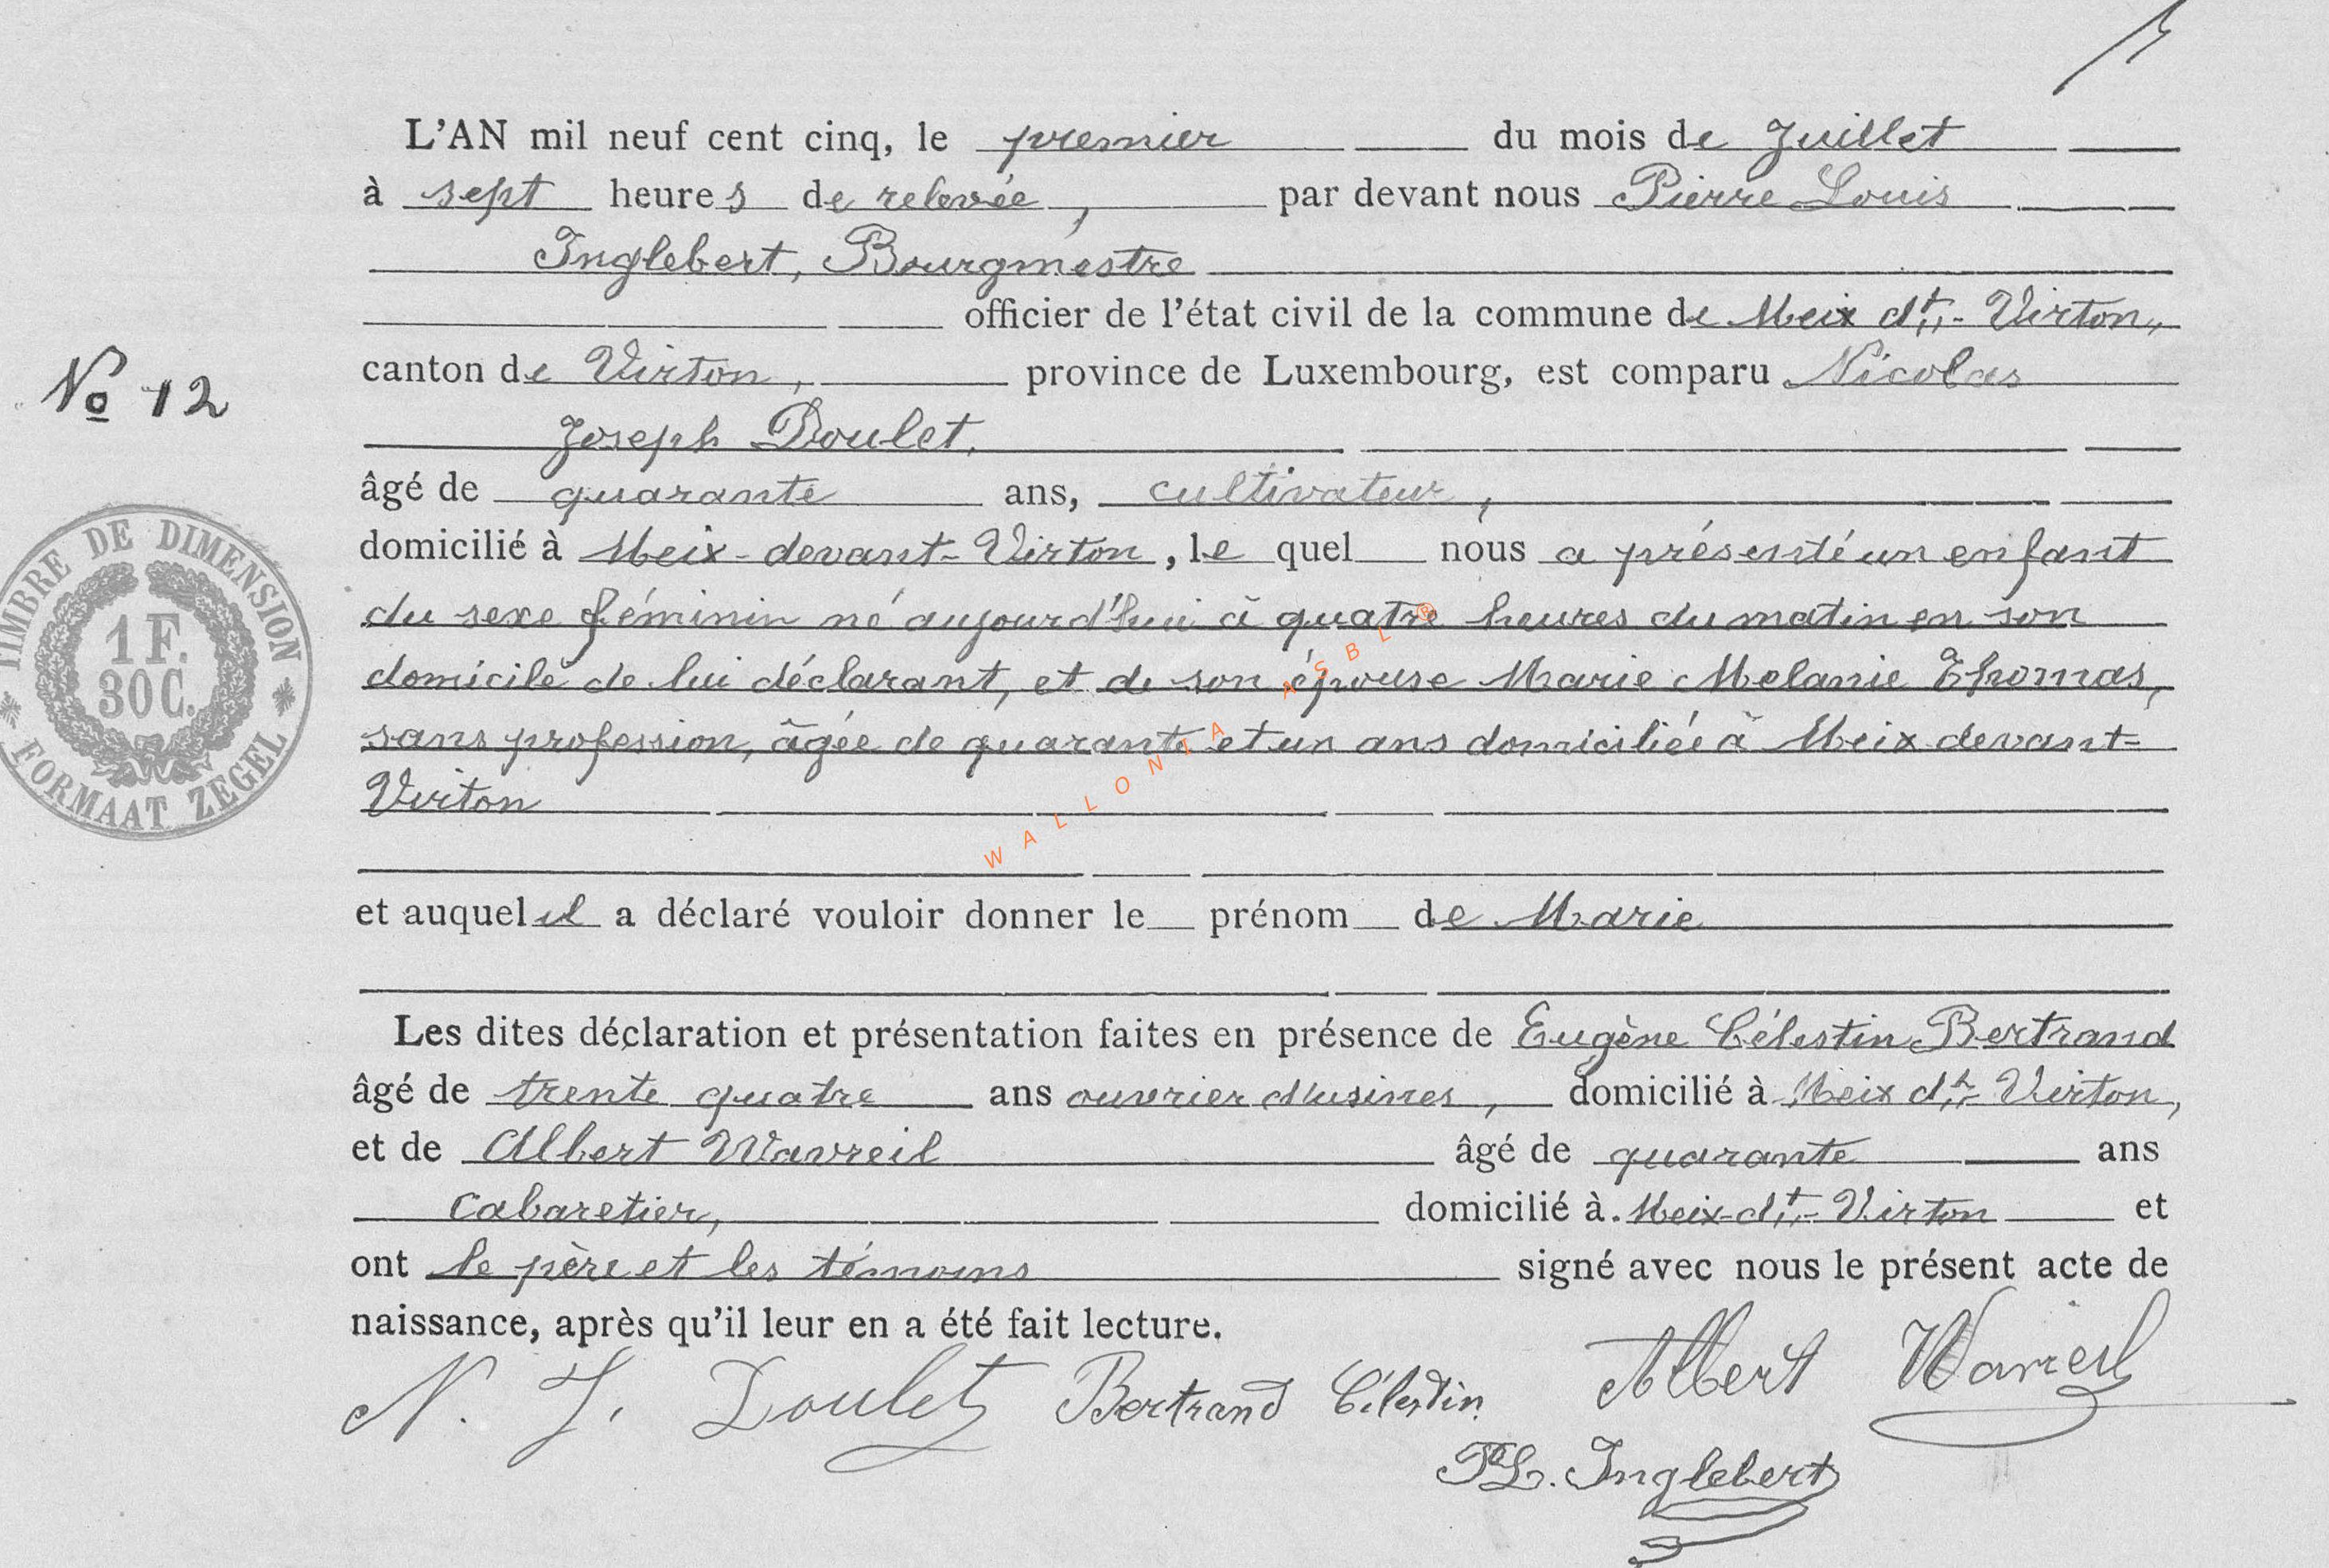 L'AN mil neuf cent cinq, le premier du mois de Juillet
à sept heures de relevée, par devant nous Pierre Louis
Inglebert, Bourgmestre
officier de l'état civil de la commune de Meix dt.- Virton,
canton de Virton, province de Luxembourg, est comparu Nicolas
Joseph Doulet,
âgé de quarante ans, cultivateur,
domicilié à Meix-devant-Virton, le quel nous a présenté un enfant
du sexe féminin né aujourd'hui à quatre heures du matin en son
domicile de lui déclarant, et de son épouse Marie Melanie Thomas,
sans profession, âgée de quarante et un ans domiciliée à Meix devant-
Virton
et auquel il a déclaré vouloir donner le prénom de Marie
Les dites déclaration et présentation faites en présence de Eugène Célestin Bertrand
âgé de trente quatre ans ouvrier d'usines, domicilié à Meix dt.- Virton,
et de Albert Wavreil âgé de quarante ans
Cabaretier, domicilié à Meix-dt.- Virton et
ont le père et les témoins signé avec nous le présent acte de
naissance, après qu'il leur en a été fait lecture.
N. J. Doulet Bertrand Célestin Albert Wavreil
PL. Inglebert
No 12
TIMBRE DE DIMENSION
1 F.
30 C.
FORMAAT ZEGEL
WALLONIA ASBL ®